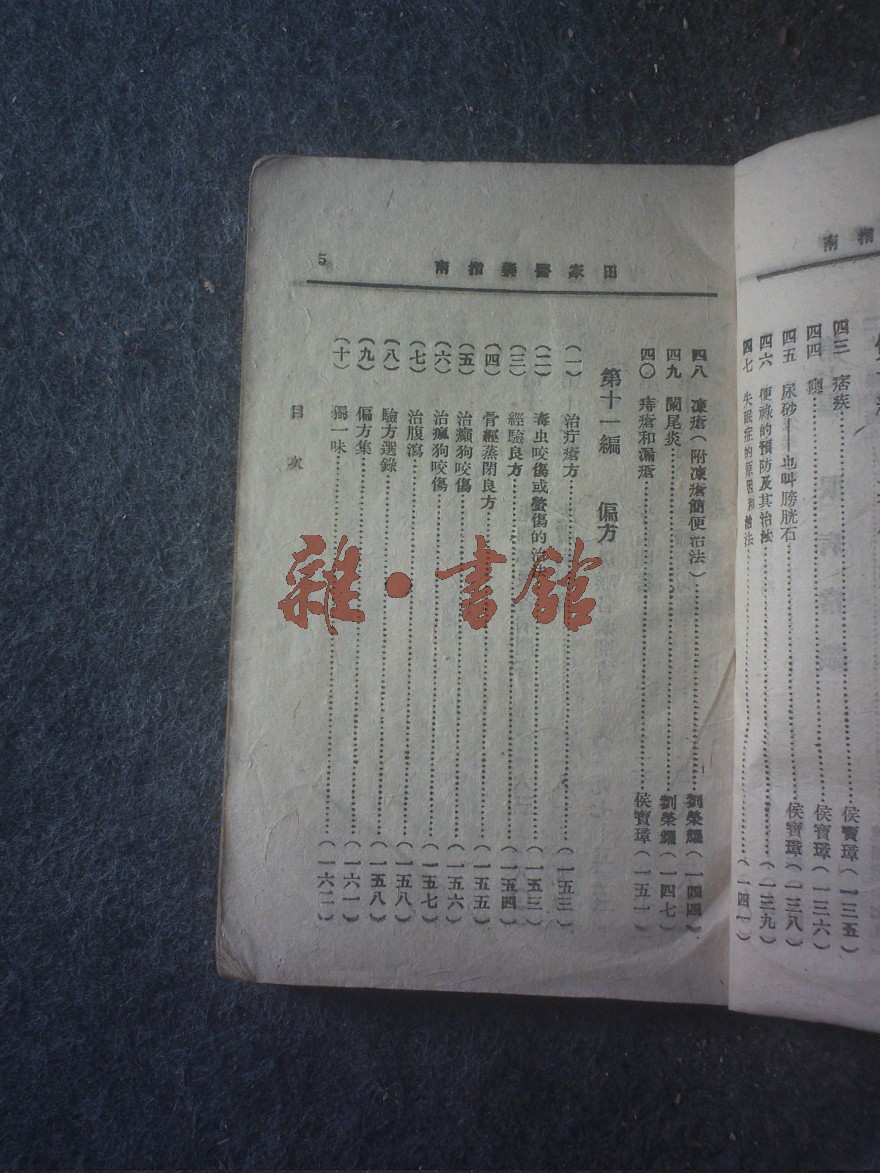 四三 痞疾……侯寶璋(一三五)
四四……侯寶璋(一三六)
四五 尿砂——也叫膀胱石……侯寶璋(一三八)
四六 便祕的預防及其治法……(一三九)
四七 失眠症的原因和治法……(一四一)
田家醫藥指南
5
四八 凍瘡(附凍瘡簡便治法)……劉榮耀(一四四)
四九 闌尾炎……劉榮耀(一四七)
四〇 痔瘡和漏瘡……侯寶璋(一五一)
第十一編 偏方
(一) 治疔瘡方……(一五三)
(二) 毒虫咬傷或螫傷的治法……(一五三)
(三) 經驗良方……(一五四)
(四) 骨經蒸閉良方……(一五五)
(五) 治癲狗咬傷……(一五六)
(六) 治瘋狗咬傷……(一五七)
(七) 治腹瀉……(一五八)
(八) 驗方選錄……(一五八)
(九) 偏方集……(一六一)
(十) 獨一味……(一六二)
目次
雜·書館